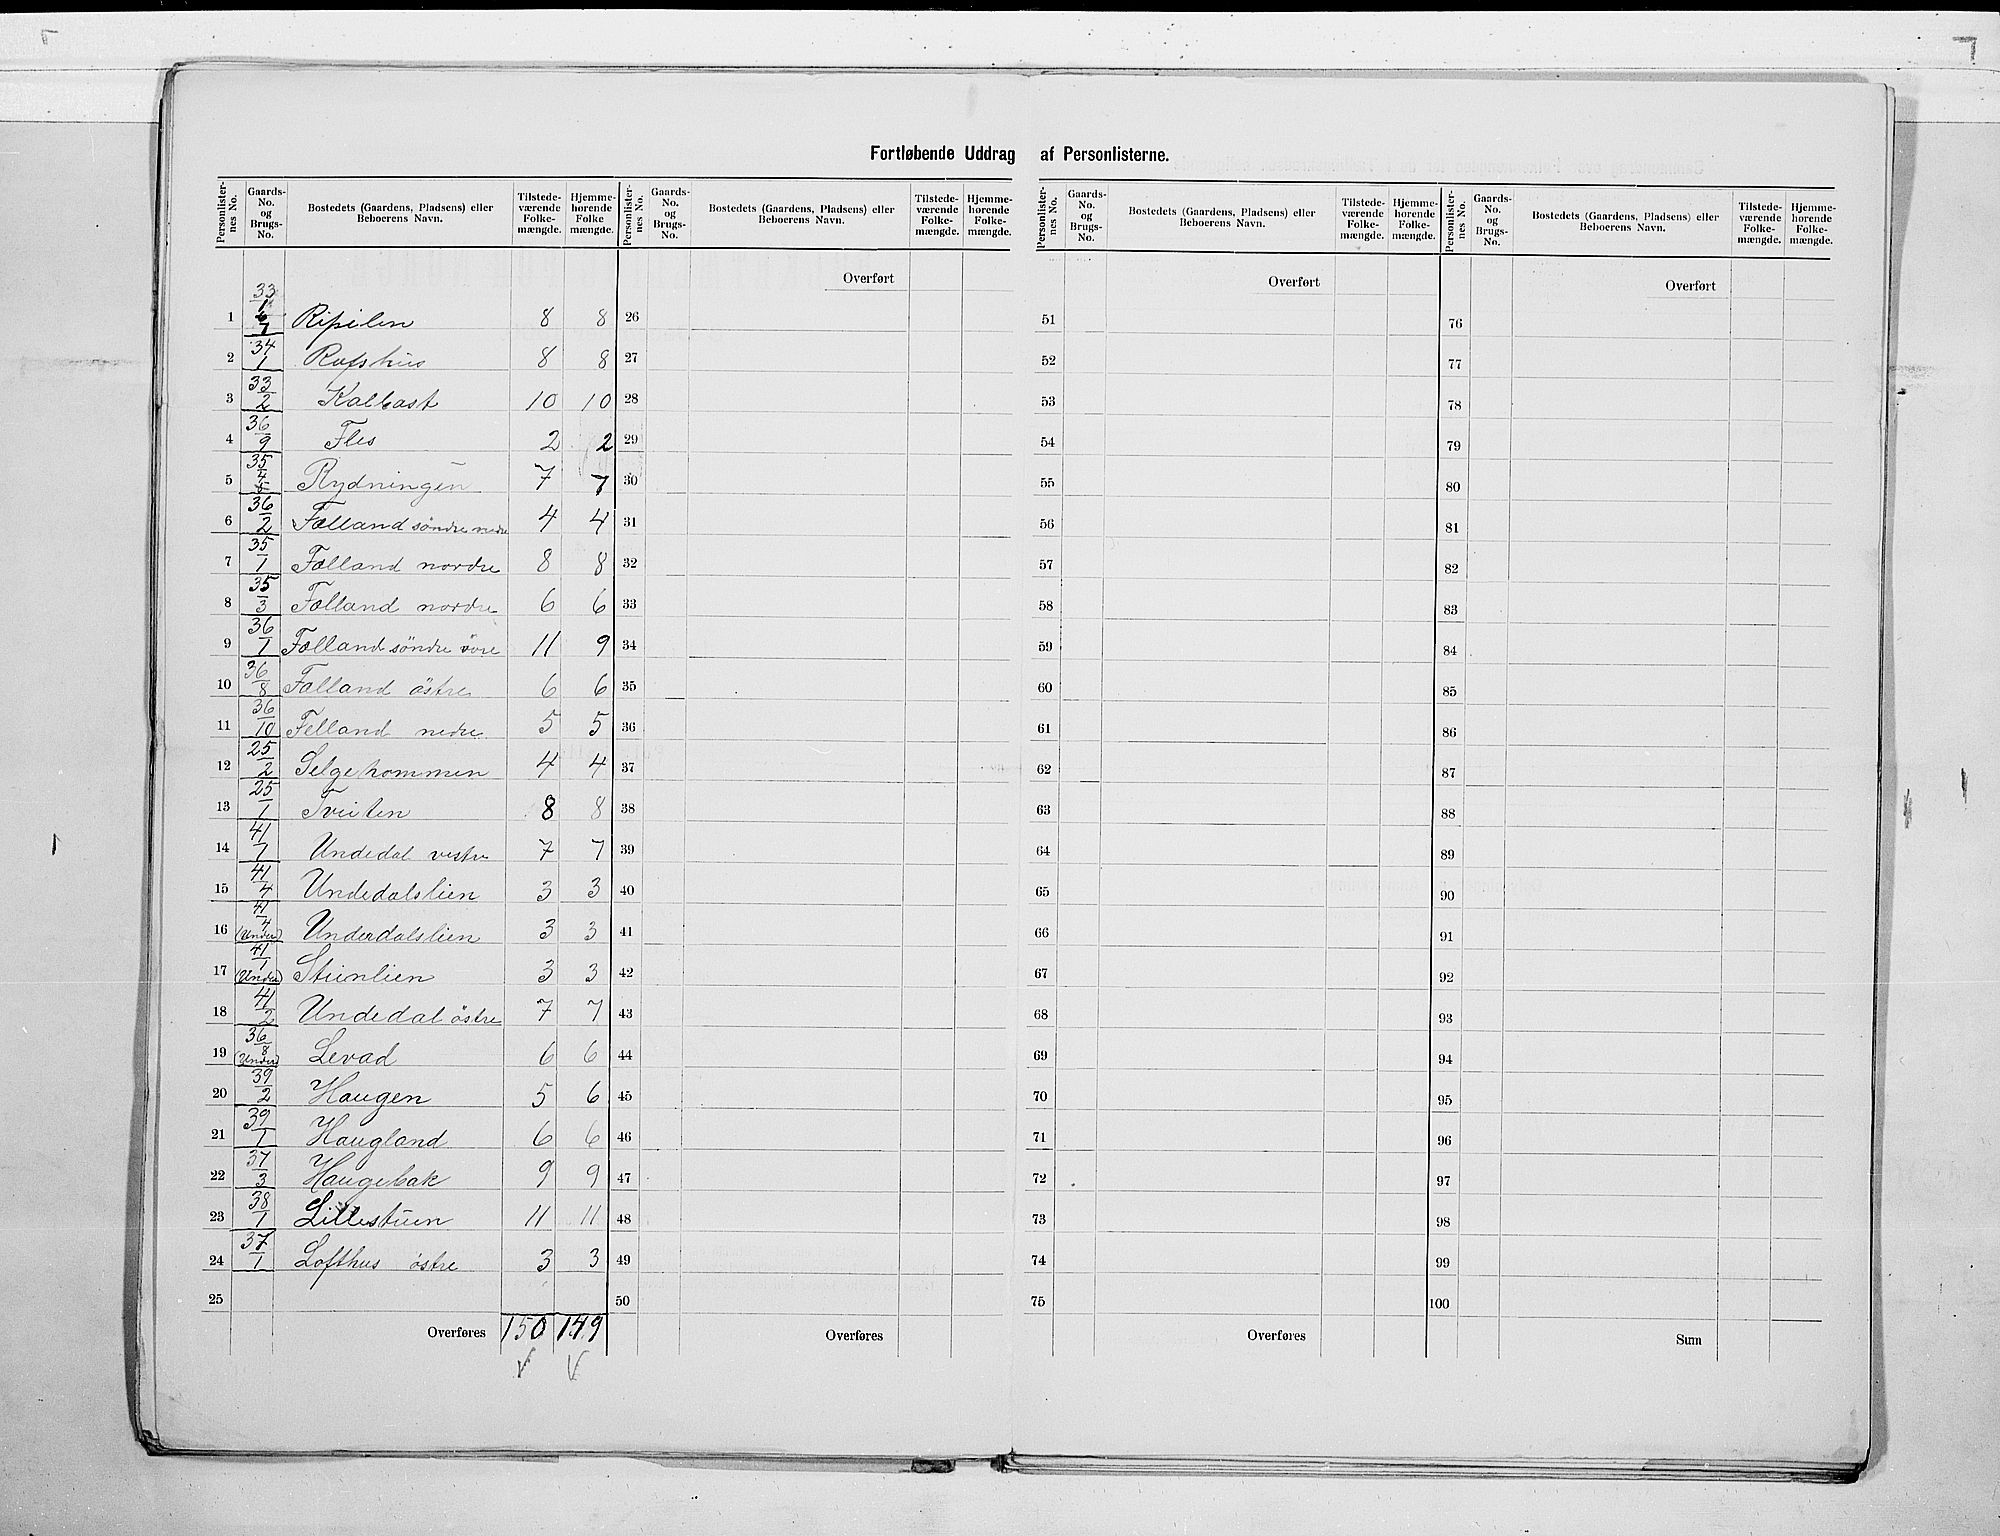 Fortløbende Uddrag af Personlisterne.
Personlisternes No. | Gaards-No. og Brugs-No. | Bostedets (Gaardens, Pladsens) eller Beboerens Navn. | Tilstedeværende Folkemængde. | Hjemmehørende Folkemængde.
1 | 33/1 & 7 | Ripilen | 8 | 8
2 | 34/1 | Rofshus | 8 | 8
3 | 33/2 | Kalbast | 10 | 10
4 | 36/9 | Fles | 2 | 2
5 | 35/4 | Rydningen | 7 | 7
6 | 36/2 | Folland søndre nedre | 4 | 4
7 | 35/1 | Folland nordre | 8 | 8
8 | 35/3 | Folland nordre | 6 | 6
9 | 36/1 | Folland søndre övre | 11 | 9
10 | 36/8 | Folland östre | 6 | 6
11 | 36/10 | Felland nedre | 5 | 5
12 | 25/2 | Selgehommen | 4 | 4
13 | 25/1 | Tveiten | 8 | 8
14 | 41/7 | Undedal vestre | 7 | 7
15 | 41/4 | Undedalslien | 3 | 3
16 | 41/4 (Under) | Underdalslien | 3 | 3
17 | 41/1 (Under) | Steinlien | 3 | 3
18 | 41/2 | Undedal östre | 7 | 7
19 | 36/8 (Under) | Levad | 6 | 6
20 | 39/2 | Haugen | 5 | 6
21 | 39/1 | Haugland | 6 | 6
22 | 37/3 | Haugebak | 9 | 9
23 | 38/1 | Lillestuen | 11 | 11
24 | 37/1 | Lofthus östre | 3 | 3
25
Overføres | 150 | 149
Personlisternes No. | Gaards-No. og Brugs-No. | Bostedets (Gaardens, Pladsens) eller Beboerens Navn. | Tilstedeværende Folkemængde. | Hjemmehørende Folkemængde.
Overført
26
27
28
29
30
31
32
33
34
35
36
37
38
39
40
41
42
43
44
45
46
47
48
49
50
Overføres
Personlisternes No. | Gaards-No. og Brugs-No. | Bostedets (Gaardens, Pladsens) eller Beboerens Navn. | Tilstedeværende Folkemængde. | Hjemmehørende Folkemængde.
Overført
51
52
53
54
55
56
57
58
59
60
61
62
63
64
65
66
67
68
69
70
71
72
73
74
75
Overføres
Personlisternes No. | Gaards-No. og Brugs-No. | Bostedets (Gaardens, Pladsens) eller Beboerens Navn. | Tilstedeværende Folkemængde. | Hjemmehørende Folkemængde.
Overført
76
77
78
79
80
81
82
83
84
85
86
87
88
89
90
91
92
93
94
95
96
97
98
99
100
Sum